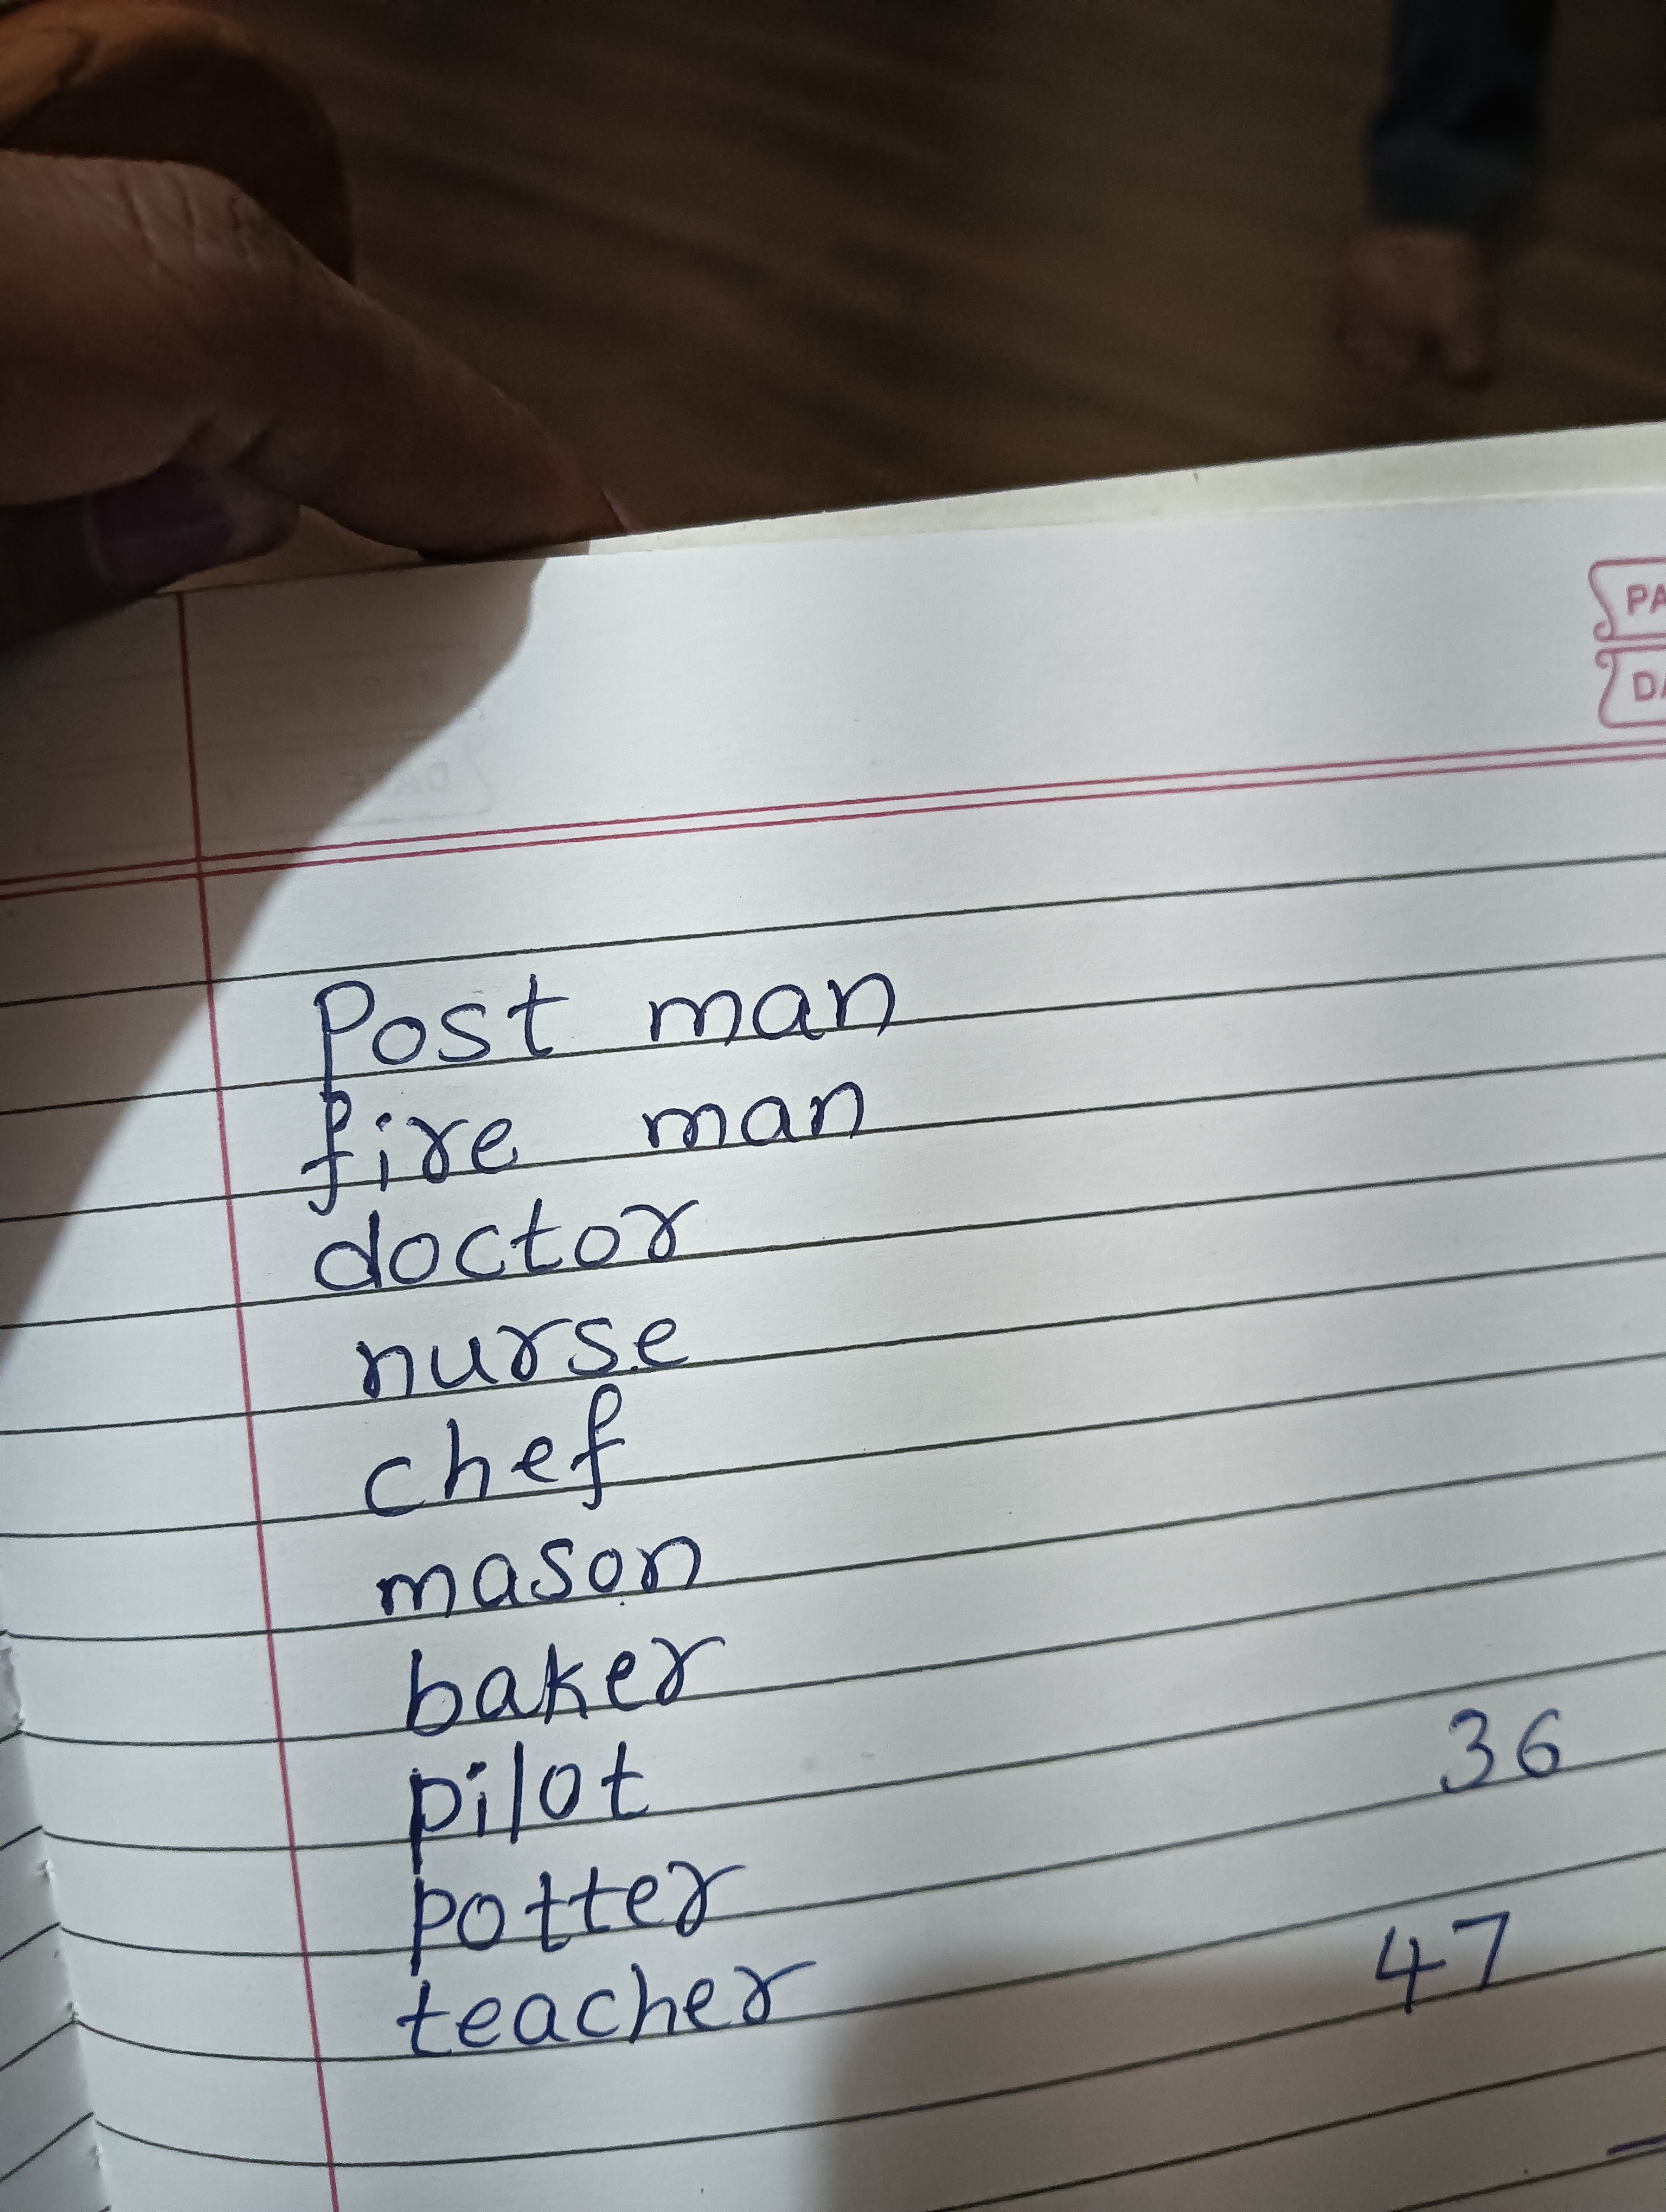 PA
DA
Post man
fire man
doctor
nurse
chef
mason
baker
pilot
36
potter
47
teacher